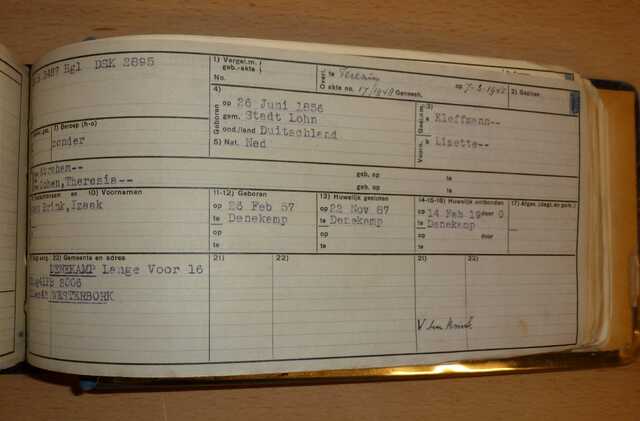 3487 Hgl DSK 2895
1) Vergel.m.
geb.-akte
No.
Overl. te
O akte no. 17/1948 Gemeenh. op 7-5-194
2) Gezinsn.
4)
Geboren op 26 Juni 1856
gem. Stadt Lohn
ond./land Duitschland
5) Nat. Ned
3)
Gesl.n.m. a Kleffmann--
Voorn. a Lisette--
7) Beroep (h-o)
zonder
Abraham--
geb. op te
Cohen, Theresia--
geb. op te
en 10) Voornamen
Brink, Izaak
11-12) Geboren
op 26 Feb 57
te Denekamp
op
te
13) Huwelijk gesloten
op 22 Nov 87
te Denekamp
op
te
14-15-16) Huwelijk ontbonden
op 14 Feb 19 door O
te Denekamp
op door
te
17) Afges.
22) Gemeente en adres
DENEKAMP Lange Voor 16
2006
WESTERBORK
21)
22)
21)
22)